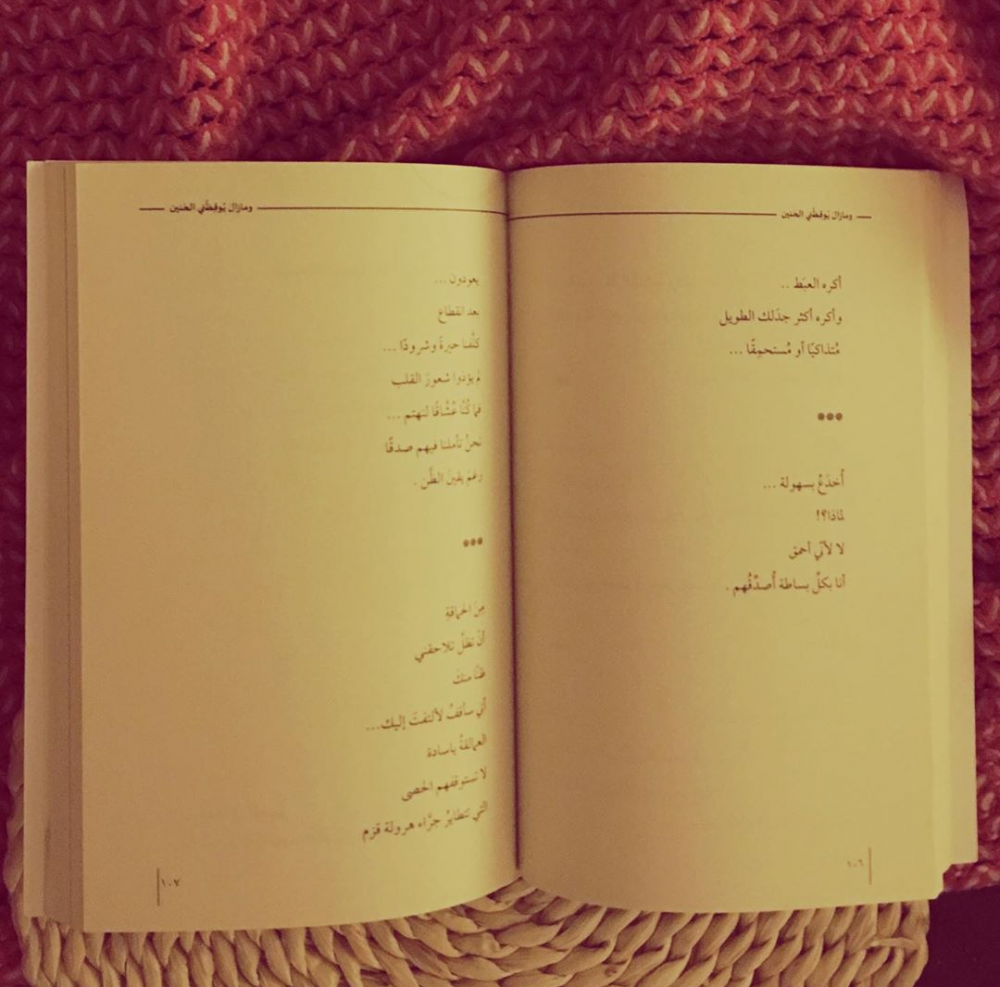 ومازال يُوقظُني الحنين
أكره العبَط ..
وأكره أكثر جدَلك الطويل
مُتذاكيًا أو مُستحمِقًا ...
●●●
أُخدَعُ بسهولة ...
لماذا؟!
لا لأنّي أحمق
أنا بكلِّ بساطة أُصدِّقُهم .
١٠٦
ومازال يُوقظُني الحنين
يعودون ...
بعد انقطاع
كلَّفنا حيرةً وشرودًا ...
لم يؤذوا شعورَ القلب
فما كُنَّا عُشَّاقًا لنهتم ...
نحنُ تأملنا فيهم صدقًا
رغمَ يقينِ الظَّن .
●●●
مِنَ الحماقةِ
أنْ تظلَّ تلاحقني
ظنًّا منكَ
أني سأقفُ لألتفتَ إليك...
العمالقةُ ياسادة
لا تستوقفهم الحصى
التي تتطايرُ جرَّاء هرولة قزم
١٠٧